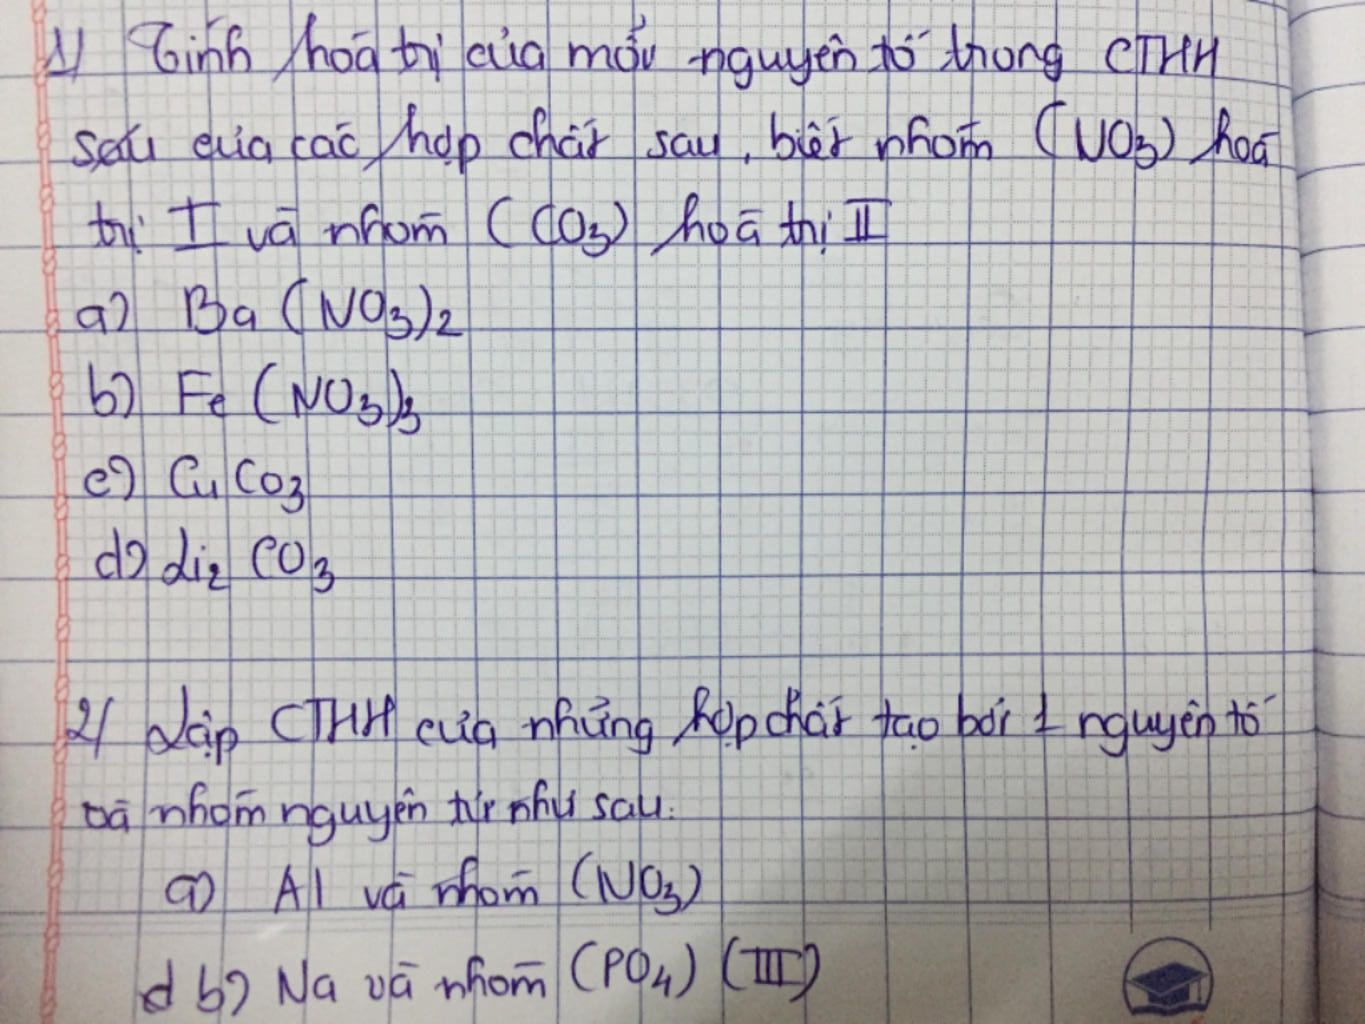 1) Tính hoá trị của mỗi nguyên tố trong CTHH
sau của các hợp chất sau, biết nhóm (NO3) hoá
trị I và nhóm (CO3) hoá trị II
a) Ba(NO3)2
b) Fe(NO3)3
c) CuCO3
d) Li2CO3
2/ Lập CTHH của những hợp chất tạo bởi 1 nguyên tố
và nhóm nguyên tử như sau:
a) Al và nhóm (NO3)
b) Na và nhóm (PO4) (III)